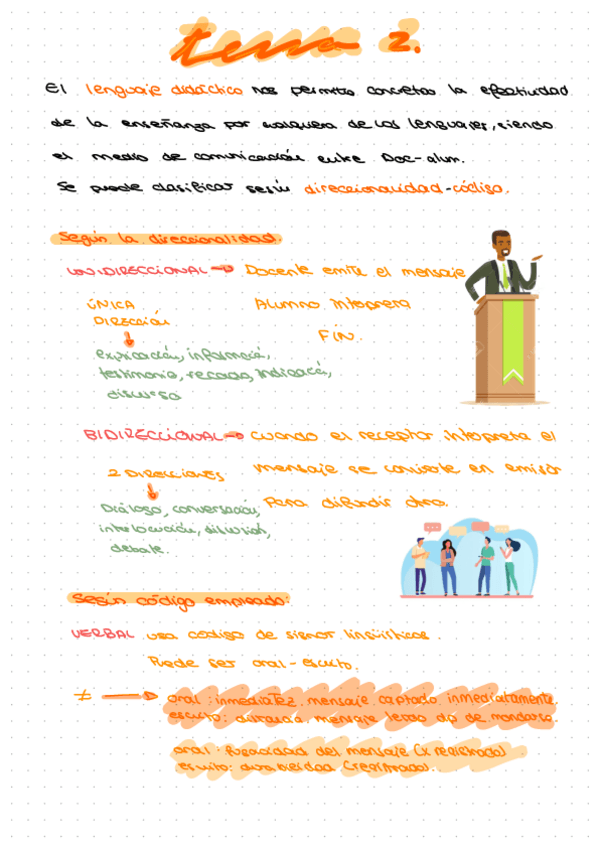 tema 2.
El lenguaje didáctico nos permite concretar la efectividad
de la enseñanza por cualquiera de los lenguajes, siendo
el medio de comunicación entre Doc-alum.
Se puede clasificar según direccionalidad-código.
Según la direccionalidad.
UNIDIRECCIONAL → Docente emite el mensaje
ÚNICA
DIRECCIÓN
Alumno interpreta
FIN.
explicación, información,
testimonio, recado, indicación,
discurso
BIDIRECCIONAL → cuando el receptor interpreta el
2 DIRECCIONES
mensaje se convierte en emisor
para difundir otro.
Diálogo, conversación,
interlocución, discusión,
debate.
Según código empleado:
VERBAL usa código de signos lingüísticos.
Puede ser oral-escrito.
≠ → oral: inmediatez, mensaje captado inmediatamente.
escrito: mensaje de
oral: fugacidad del mensaje (x registrado)
escrito: durabilidad (registrado).